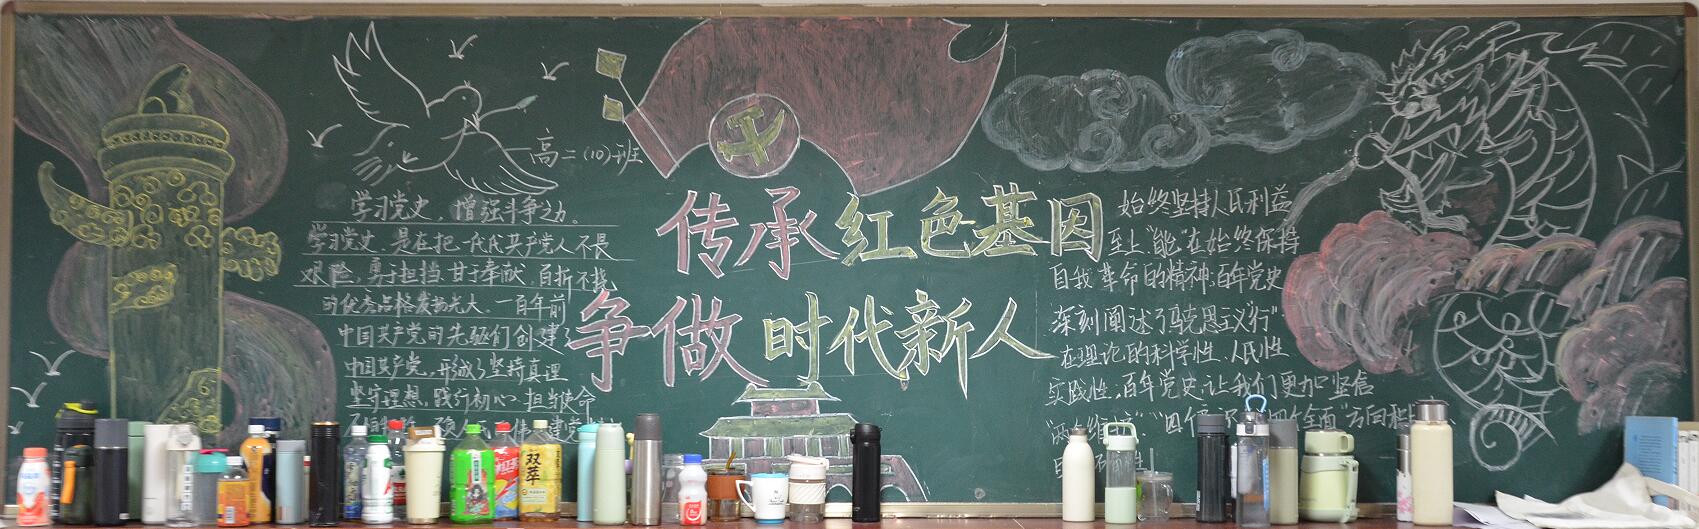 高二(10)班
学习党史，增强斗争之力。
学习党史，是在把一代代共产党人不畏
艰险，勇于担当，甘于奉献，百折不挠
的优秀品格发扬光大。一百年前
中国共产党的先驱们创建了
中国共产党，形成了坚持真理
坚守理想，践行初心、担当使命
传承红色基因
争做时代新人
始终坚持人民利益
至上"能"在始终保持
自我革命的精神；百年党史
深刻阐述了马克思主义"行"
在理论的科学性、人民性
实践性；百年党史，让我们更加坚信
"四个全面"方向和
双萃